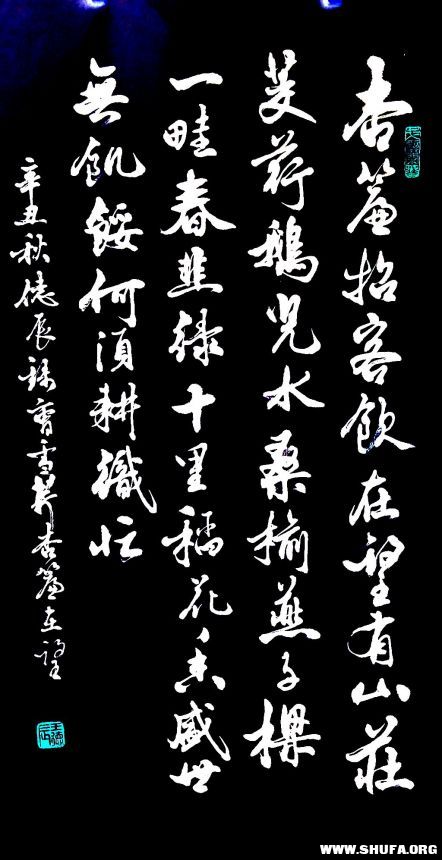 杏簾招客飲在望有山莊
菱荇鵝兒水桑榆燕子樑
一畦春韭綠十里稻花香盛世
無飢餒何須耕織忙
辛丑秋德辰錄曹雪芹杏簾在望
WWW.SHUFA.ORG